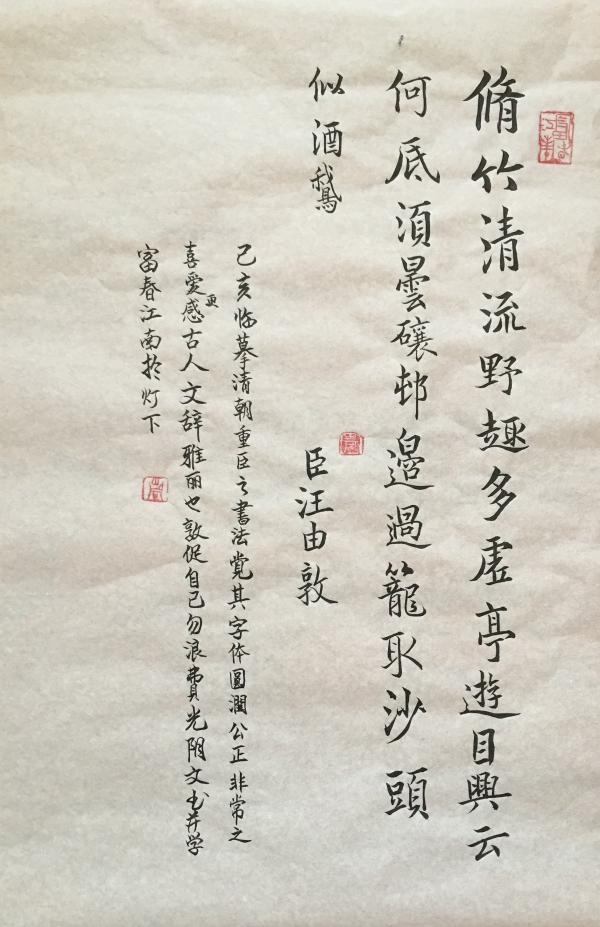 脩竹清流野趣多虚亭遊目興云
何底須曇礦邨邉過籠取沙頭
似酒鵝
臣汪由敦
己亥临摹清朝重臣之書法覚其字体圆潤公正非常之
喜爱更感古人文辞雅丽也敦促自己勿浪费光阴文书并学
富春江南扵灯下